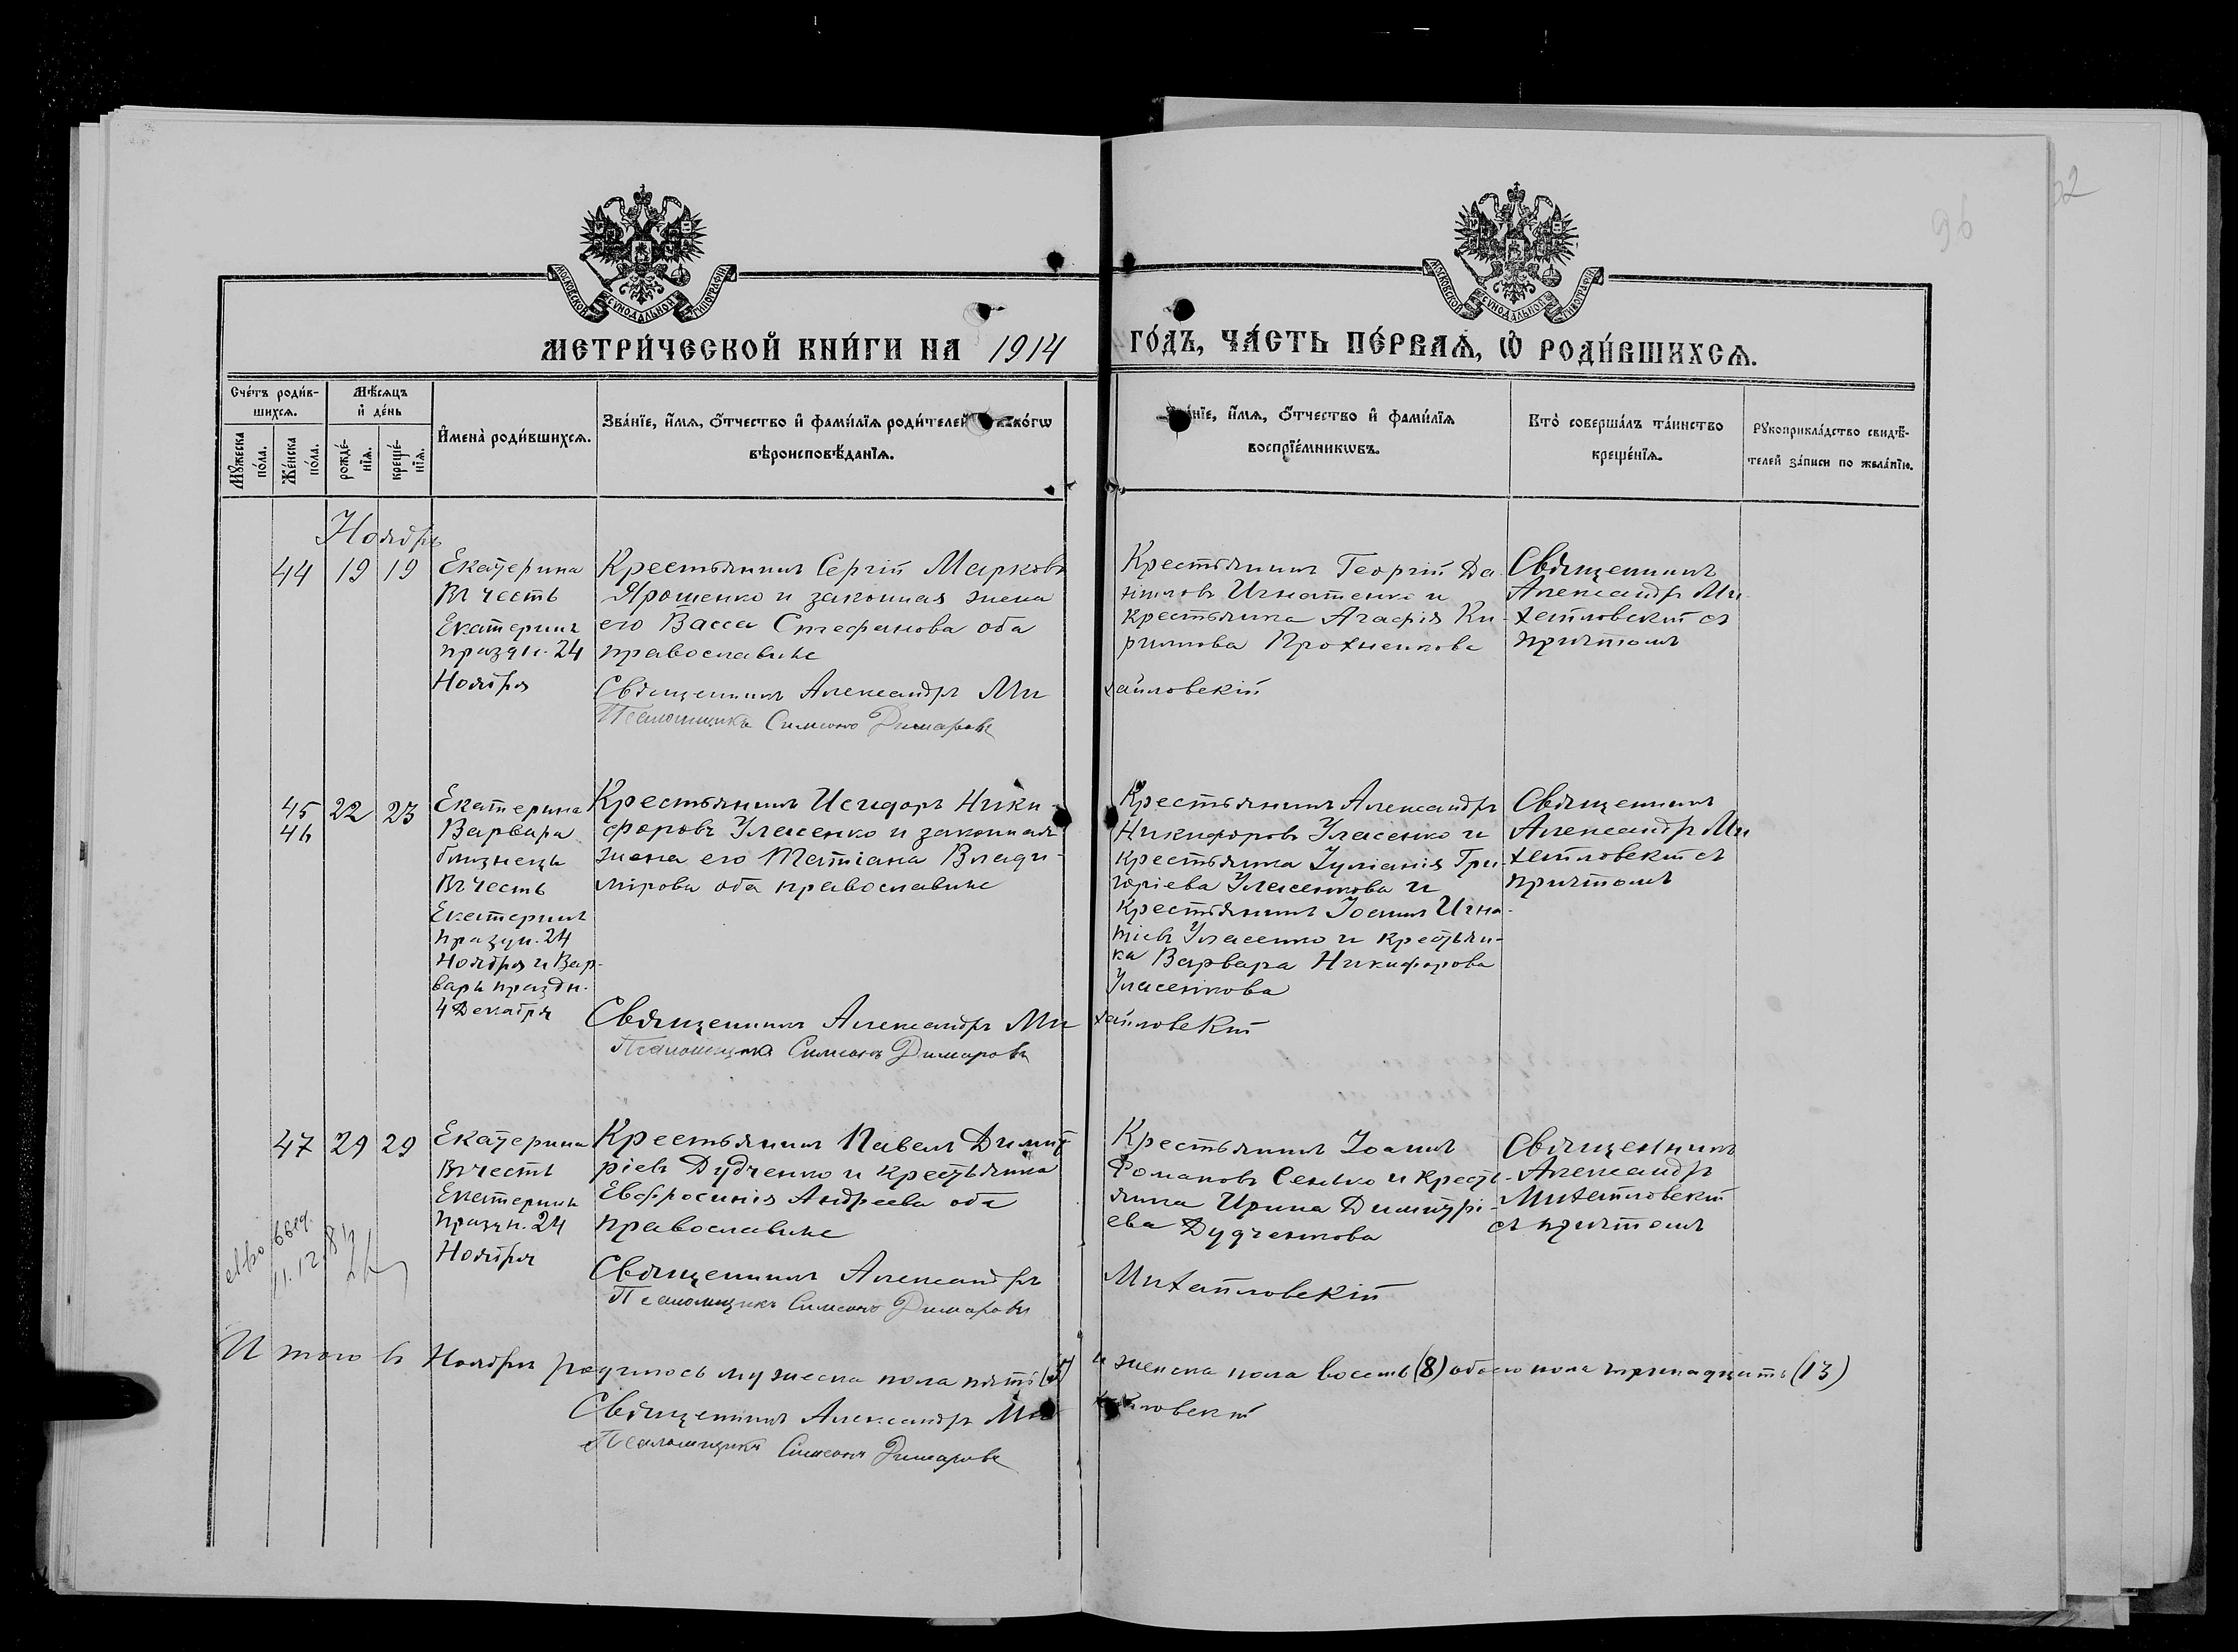 96
МОСКОВСКОЙ СѴНОДАЛЬНОЙ ТИПОГРАФІИ
МОСКОВСКОЙ СѴНОДАЛЬНОЙ ТИПОГРАФІИ
МЕТРИ́ЧЕСКОЙ КНИ́ГИ НА 1914
ГО́ДЪ, ЧА́СТЬ ПЕ́РВАѦ, Ѡ РОДИ́ВШИХСѦ.
Сче́тъ роди́в-
шихсѧ.
Мꙋ́жеска
по́ла.
Же́нска
по́ла.
Мѣ́сѧцъ
и҆ де́нь
рожде́-
нїѧ.
креще́-
нїѧ.
И҆мена̀ роди́вшихсѧ.
Зва́нїе, и҆́мѧ, ѻ҆́тчество и҆ фами́лїѧ роди́телей
вѣроисповѣ́данїѧ.
и҆́мѧ, ѻ҆́тчество и҆ фами́лїѧ
воспрїе́мникѡвъ.
Кто̀ соверша́лъ та́инство
креще́нїѧ.
Рꙋкоприкла́дство свидѣ́-
телей за́писи по жела́нїю.
Ноябрь
44 19 19
Екатерина
Въ честь
Екатерины
праздн. 24
Ноября
Крестьянинъ Сергій Марковъ
Ярошенко и законная жена
его Васса Стефанова оба
православные
Священникъ Александръ Ми
хайловскій
Псаломщикъ Симеонъ Димаровъ
Крестьянинъ Георгій Да-
ніиловъ Игнатенко и
крестьянка Агафія Ки-
риллова
Священникъ
Александръ Ми
хайловскій съ
причтомъ
45
46
22 23
Екатерина
Варвара
близнецы
Въ честь
Екатерины
праздн. 24
Ноября и Вар-
вары праздн.
4 Декабря
Крестьянинъ Исидоръ Ники-
форовъ Уласенко и законная
жена его Татіана Влади-
мірова оба православные
Священникъ Александръ Ми
хайловскій
Псаломщикъ Симеонъ Димаровъ
Крестьянинъ Александръ
Никифоровъ Уласенко и
крестьянка Іуліанія Гри-
горіева Уласенкова и
крестьянинъ Іоаннъ Игна-
тіевъ Уласенко и крестьян-
ка Варвара Никифорова
Уласенкова
Священникъ
Александръ Ми
хайловскій съ
причтомъ
47 29 29
Екатерина
Въ честь
Екатерины
праздн. 24
Ноября
Крестьянинъ Павелъ Димит
ріевъ Дудченко и крестьянка
Евфросинія Андреева оба
православные
Священникъ Александръ
Михайловскій
Псаломщикъ Симеонъ Димаровъ
Крестьянинъ Іоаннъ
Романовъ Сенько и кресть-
янка Ирина Димитрі-
ева Дудченкова
Священникъ
Александръ
Михайловскій
съ причтомъ
Итого въ Ноябрѣ родилось мужеска пола пять (5) и женска пола восемь (8) обоего пола тринадцать (13)
Священникъ Александръ Ми
хайловскій
Псаломщикъ Симеонъ Димаровъ